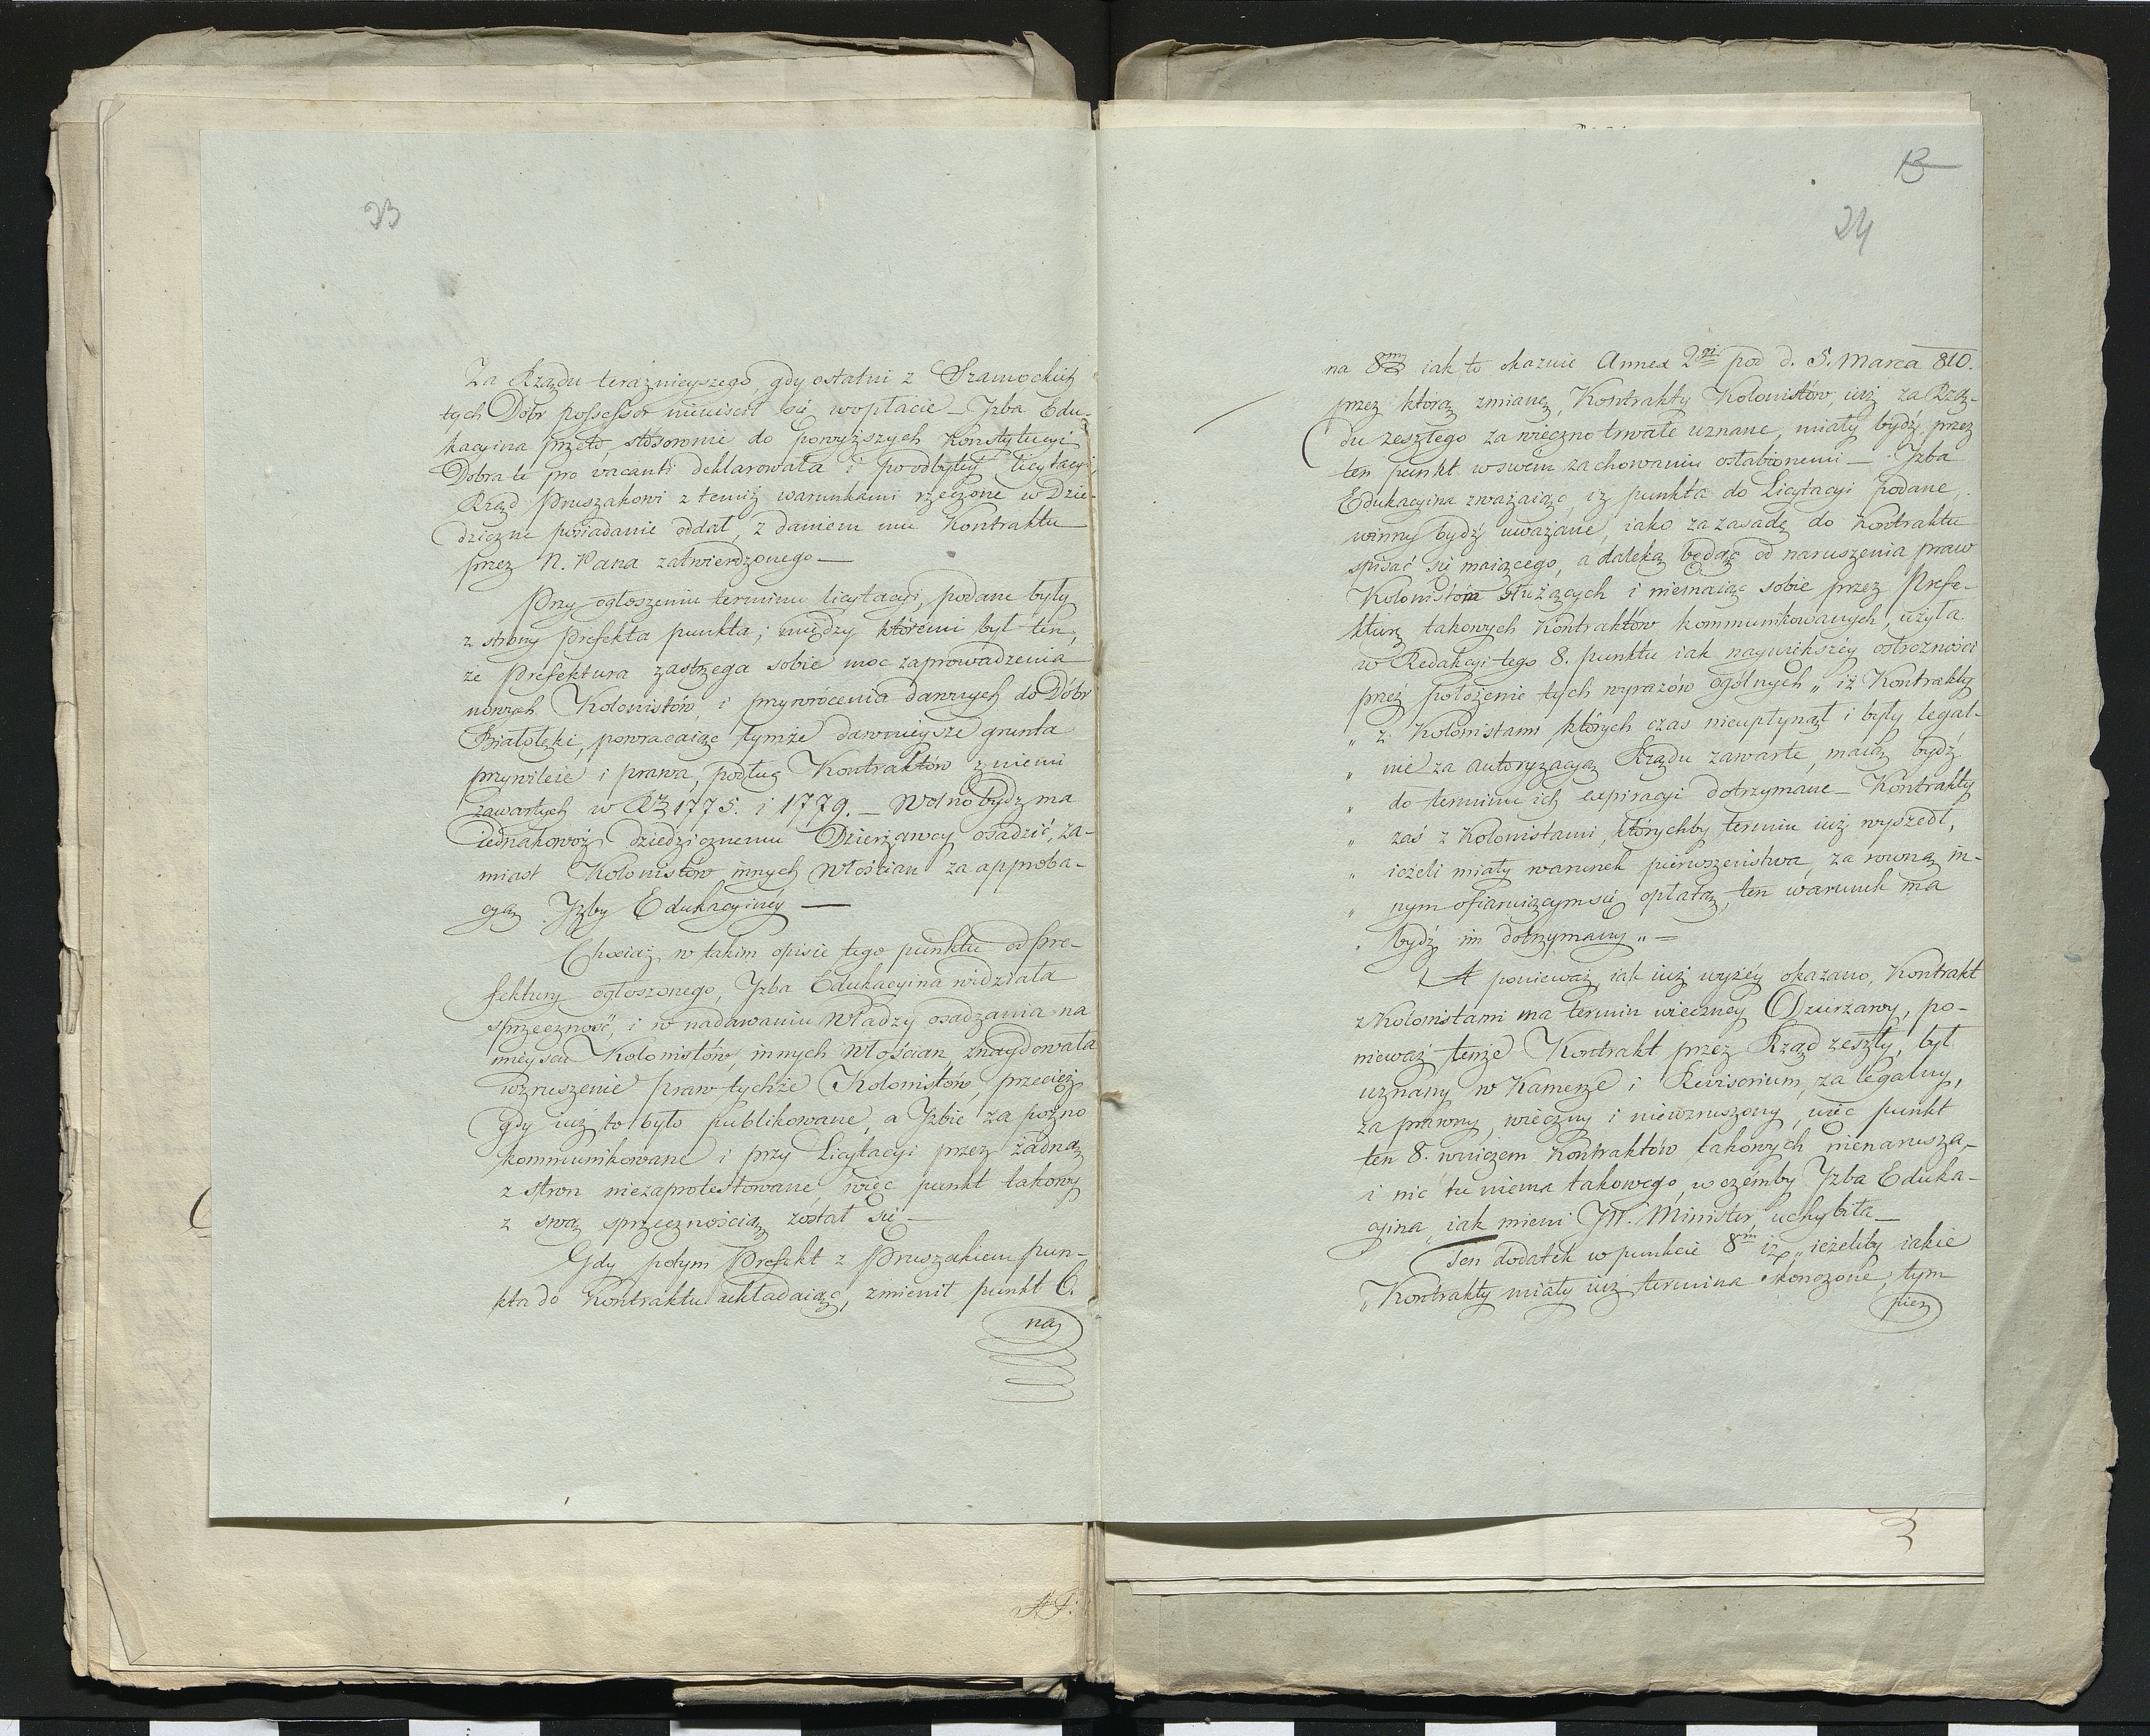 23
Za Rządu teraznieyszego, gdy ostatni z Szamockich
tych Dóbr possessor nieuiścił się w opłacie – Jzba Edu-
kacyina przeto, stosownie do powyższych Konstytucyi
Dobra te pro vacanti deklarowała i po odbytey licytacyi
Rząd Pruszakowi z temiż warunkami rzeczone w Dzie-
dziczne posiadanie oddał, z daniem mu Kontraktu
przez N. Pana zatwierdzonego —
Przy ogłoszeniu terminu licytacyi, podane były
z strony Prefekta punkta; między któremi był ten,
że Prefektura zastrzega sobie moc zaprowadzenia
nowych Kolonistów, i przywrócenia dawnych do Dóbr
Białołęki, powracaiąc tymże dawnieysze grunta
przywileie i prawa, podług Kontraktów z niemi
zawartych w R. 1775. i 1779. – Wolno bydź ma
iednakowoż dziedzicznemu Dzierżawcy osadzić, za-
miast Kolonistów innych Włościan za approba-
cyą Jzby Edukacyiney —
Chociaż w takim opisie tego punktu od Pre-
fektury ogłoszonego, Jzba Edukacyina widziała
sprzeczność, i w nadawaniu Władzy osadzania na
mieyscu Kolonistów, innych Włościan, znaydowała
wzruszenie praw tychże Kolonistów, przecież
gdy iuż to było publikowane, a Jzbie za poźno
kommunikowane i przy Licytacyi przez żadną
z stron niezaprotestowane, więc punkt takowy
z swą sprzecznością został się —
Gdy potym Prefekt z Pruszakiem pun-
kta do Kontraktu układaiąc, zmienił punkt 6.
na
A.T.
13
24
na 8my iak to okazuie Annex 2gi pod d. 5. Marca 810.
przez którą zmianę, Kontrakty Kolonistów, iuż za Rzą-
du zeszłego za wieczno trwałe uznane, miały bydź przez
ten punkt w swem zachowaniu osłabionemi – Jzba
Edukacyina zważaiąc, iż punkta do Licytacyi podane,
winny bydź uważane, iako za zasadę do Kontraktu
spisać się maiącego, a daleką będąc od naruszenia praw
Kolonistóm służących i niemaiąc sobie przez Prefe-
kturę takowych Kontraktów kommunikowanych, użyła
w Redakcyi tego 8. punktu iak naywiększéy ostrożności
przez położenie tych wyrazów ogólnych „ iż Kontrakty
„ z Kolonistami, których czas nieupłynął i były legal-
„ nie za autoryzacyą Rządu zawarte, maią bydź
„ do terminu ich expiracyi dotrzymane – Kontrakty
„ zaś z Kolonistami, którychby termin iuż wyszedł,
„ ieżeli miały warunek pierwszeństwa, za równą in-
„ nym ofiaruiącym się opłatą, ten warunek ma
„ bydź im dotrzymany „ =
A ponieważ iak iuż wyżéy okazano, Kontrakt
z Kolonistami ma termin wieczney Dzierżawy, po-
nieważ tenże Kontrakt przez Rząd zeszły, był
uznany w Kamerze i Revisorium, za legalny,
za prawny, wieczny i niewzruszony, więc punkt
ten 8. w niczem Kontraktów takowych nienarusza,
i nic tu niema takowego, w czémby Jzba Eduka-
cyina, iak mieni JW. Minister, uchybiła —
Ten dodatek w punkcie 8m iż „ ieżeliby iakie
„ Kontrakty miały iuż termina skończone, tym
pier